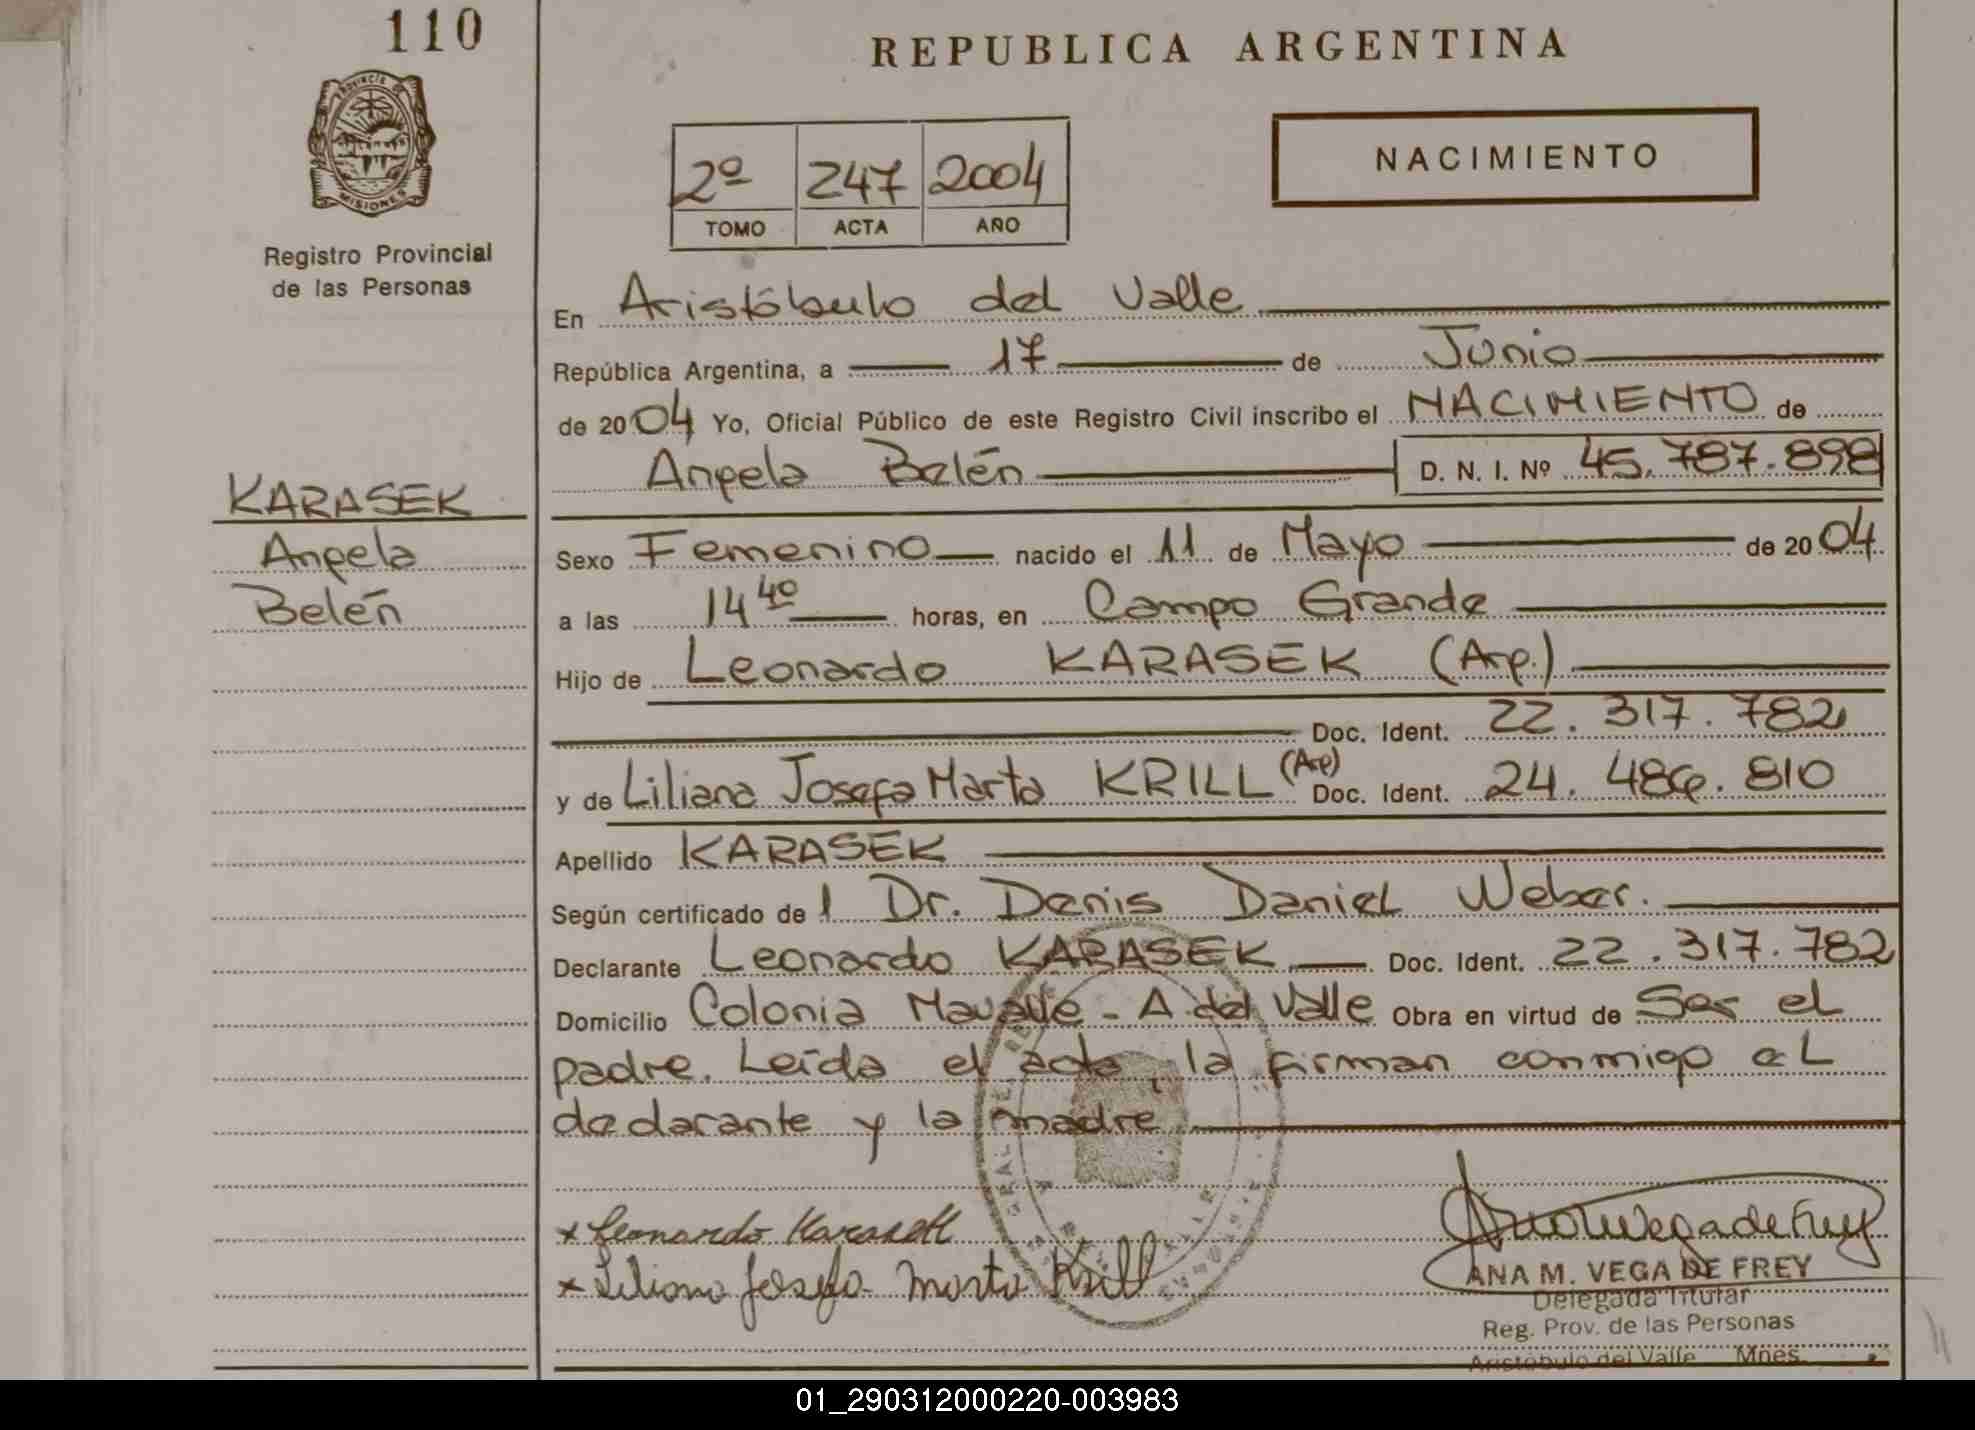 110
REPUBLICA ARGENTINA
PROVINCIA DE
MISIONES
Registro Provincial
de las Personas
2º 247 2004
TOMO ACTA AÑO
NACIMIENTO
En Aristóbulo del Valle
República Argentina, a 17 de Junio
de 2004 Yo, Oficial Público de este Registro Civil inscribo el NACIMIENTO de
Angela Belén D. N. I. Nº 45.787.898
KARASEK
Angela
Belén
Sexo Femenino nacido el 11 de Mayo de 2004
a las 14 40 horas, en Campo Grande
Hijo de Leonardo KARASEK (Arg.)
Doc. Ident. 22.317.782
y de Liliana Josefa Marta KRILL (Arg) Doc. Ident. 24.486.810
Apellido KARASEK
Según certificado de l Dr. Denis Daniel Weber.
Declarante Leonardo KARASEK Doc. Ident. 22.317.782
Domicilio Colonia Mavalle - A. del Valle Obra en virtud de Ser el
padre. Leída el acta, la firman conmigo el
declarante y la madre.
x Leonardo Karasek
x Liliana Josefa Marta Krill
Ana Vega de Frey
ANA M. VEGA DE FREY
Delegada Titular
Reg. Prov. de las Personas
Aristóbulo del Valle Mnes.
01_290312000220-003983